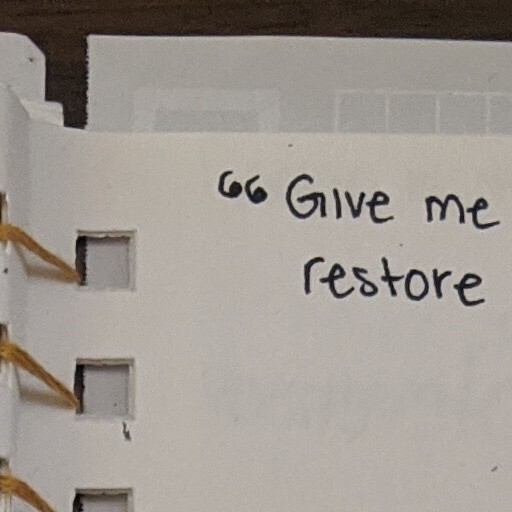 “Give me
restore